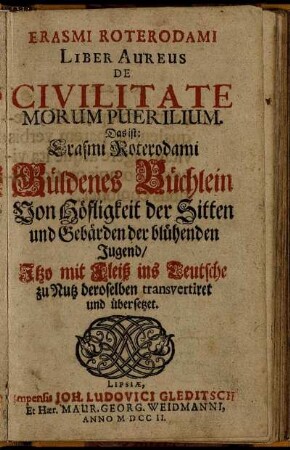 ERASMI ROTERODAMI
LIBER AUREUS
DE
CIVILITATE
MORUM PUERILIUM.
Das ist:
Erasmi Roterodami
Güldenes Büchlein
Von Höfligkeit der Sitten
und Gebärden der blühenden
Jugend/
Itzo mit Fleiß ins Teutsche
zu Nutz deroselben transvertiret
und übersetzet.
LIPSIÆ,
Impensis JOH. LUDOVICI GLEDITSCII
Et Hær. MAUR. GEORG. WEIDMANNI,
ANNO M DCC II.